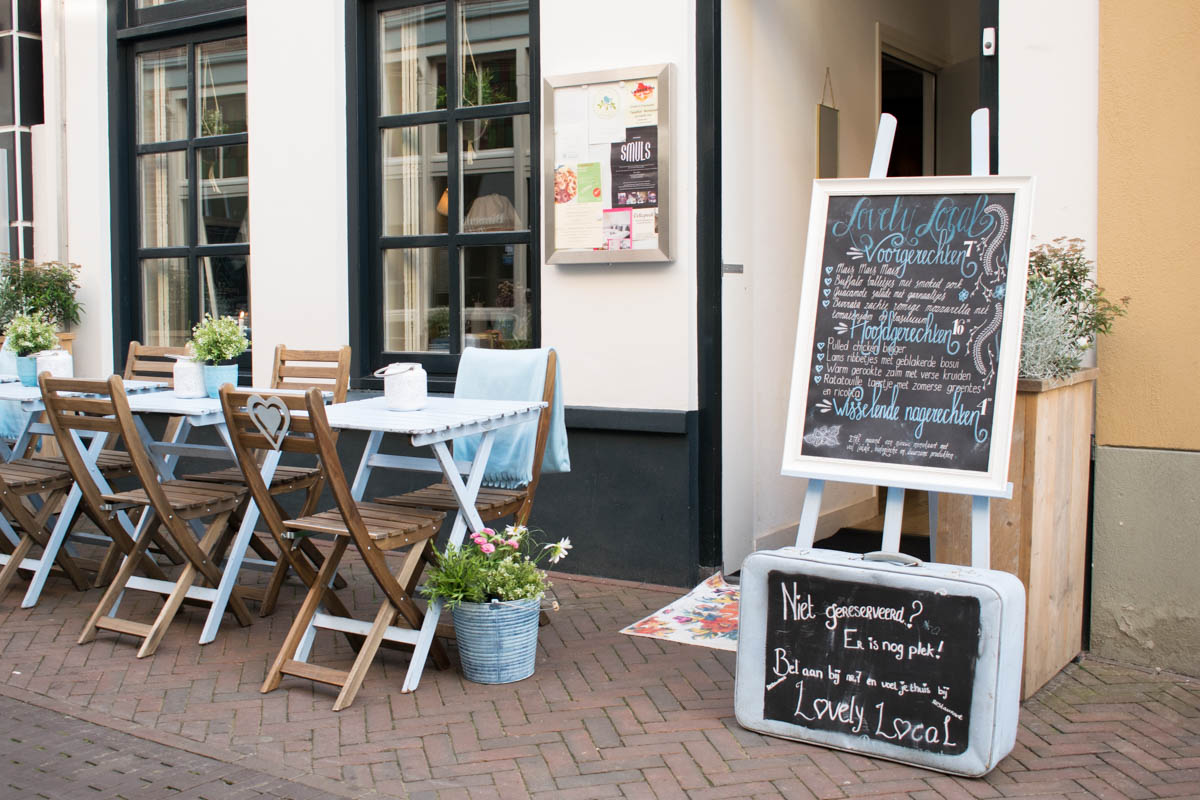 SMULS
Lovely Local
Voorgerechten 7
Mais Mais Mais
Buffalo balletjes met smoked pork
Guacamole salade met garnaaltjes
Burrata zachte romige mozzarella met
tomatenjam & basilicum
Hoofdgerechten 16
Pulled chicken burger
Lams ribbetjes met geblakerde bosui
Warm gerookte zalm met verse kruiden
Ratatouille taartje met zomerse groentes
en ricotta
Wisselende nagerechten
Niet gereserveerd?
Er is nog plek!
Bel aan bij nr.7 en voel je thuis bij
restaurant
Lovely Local